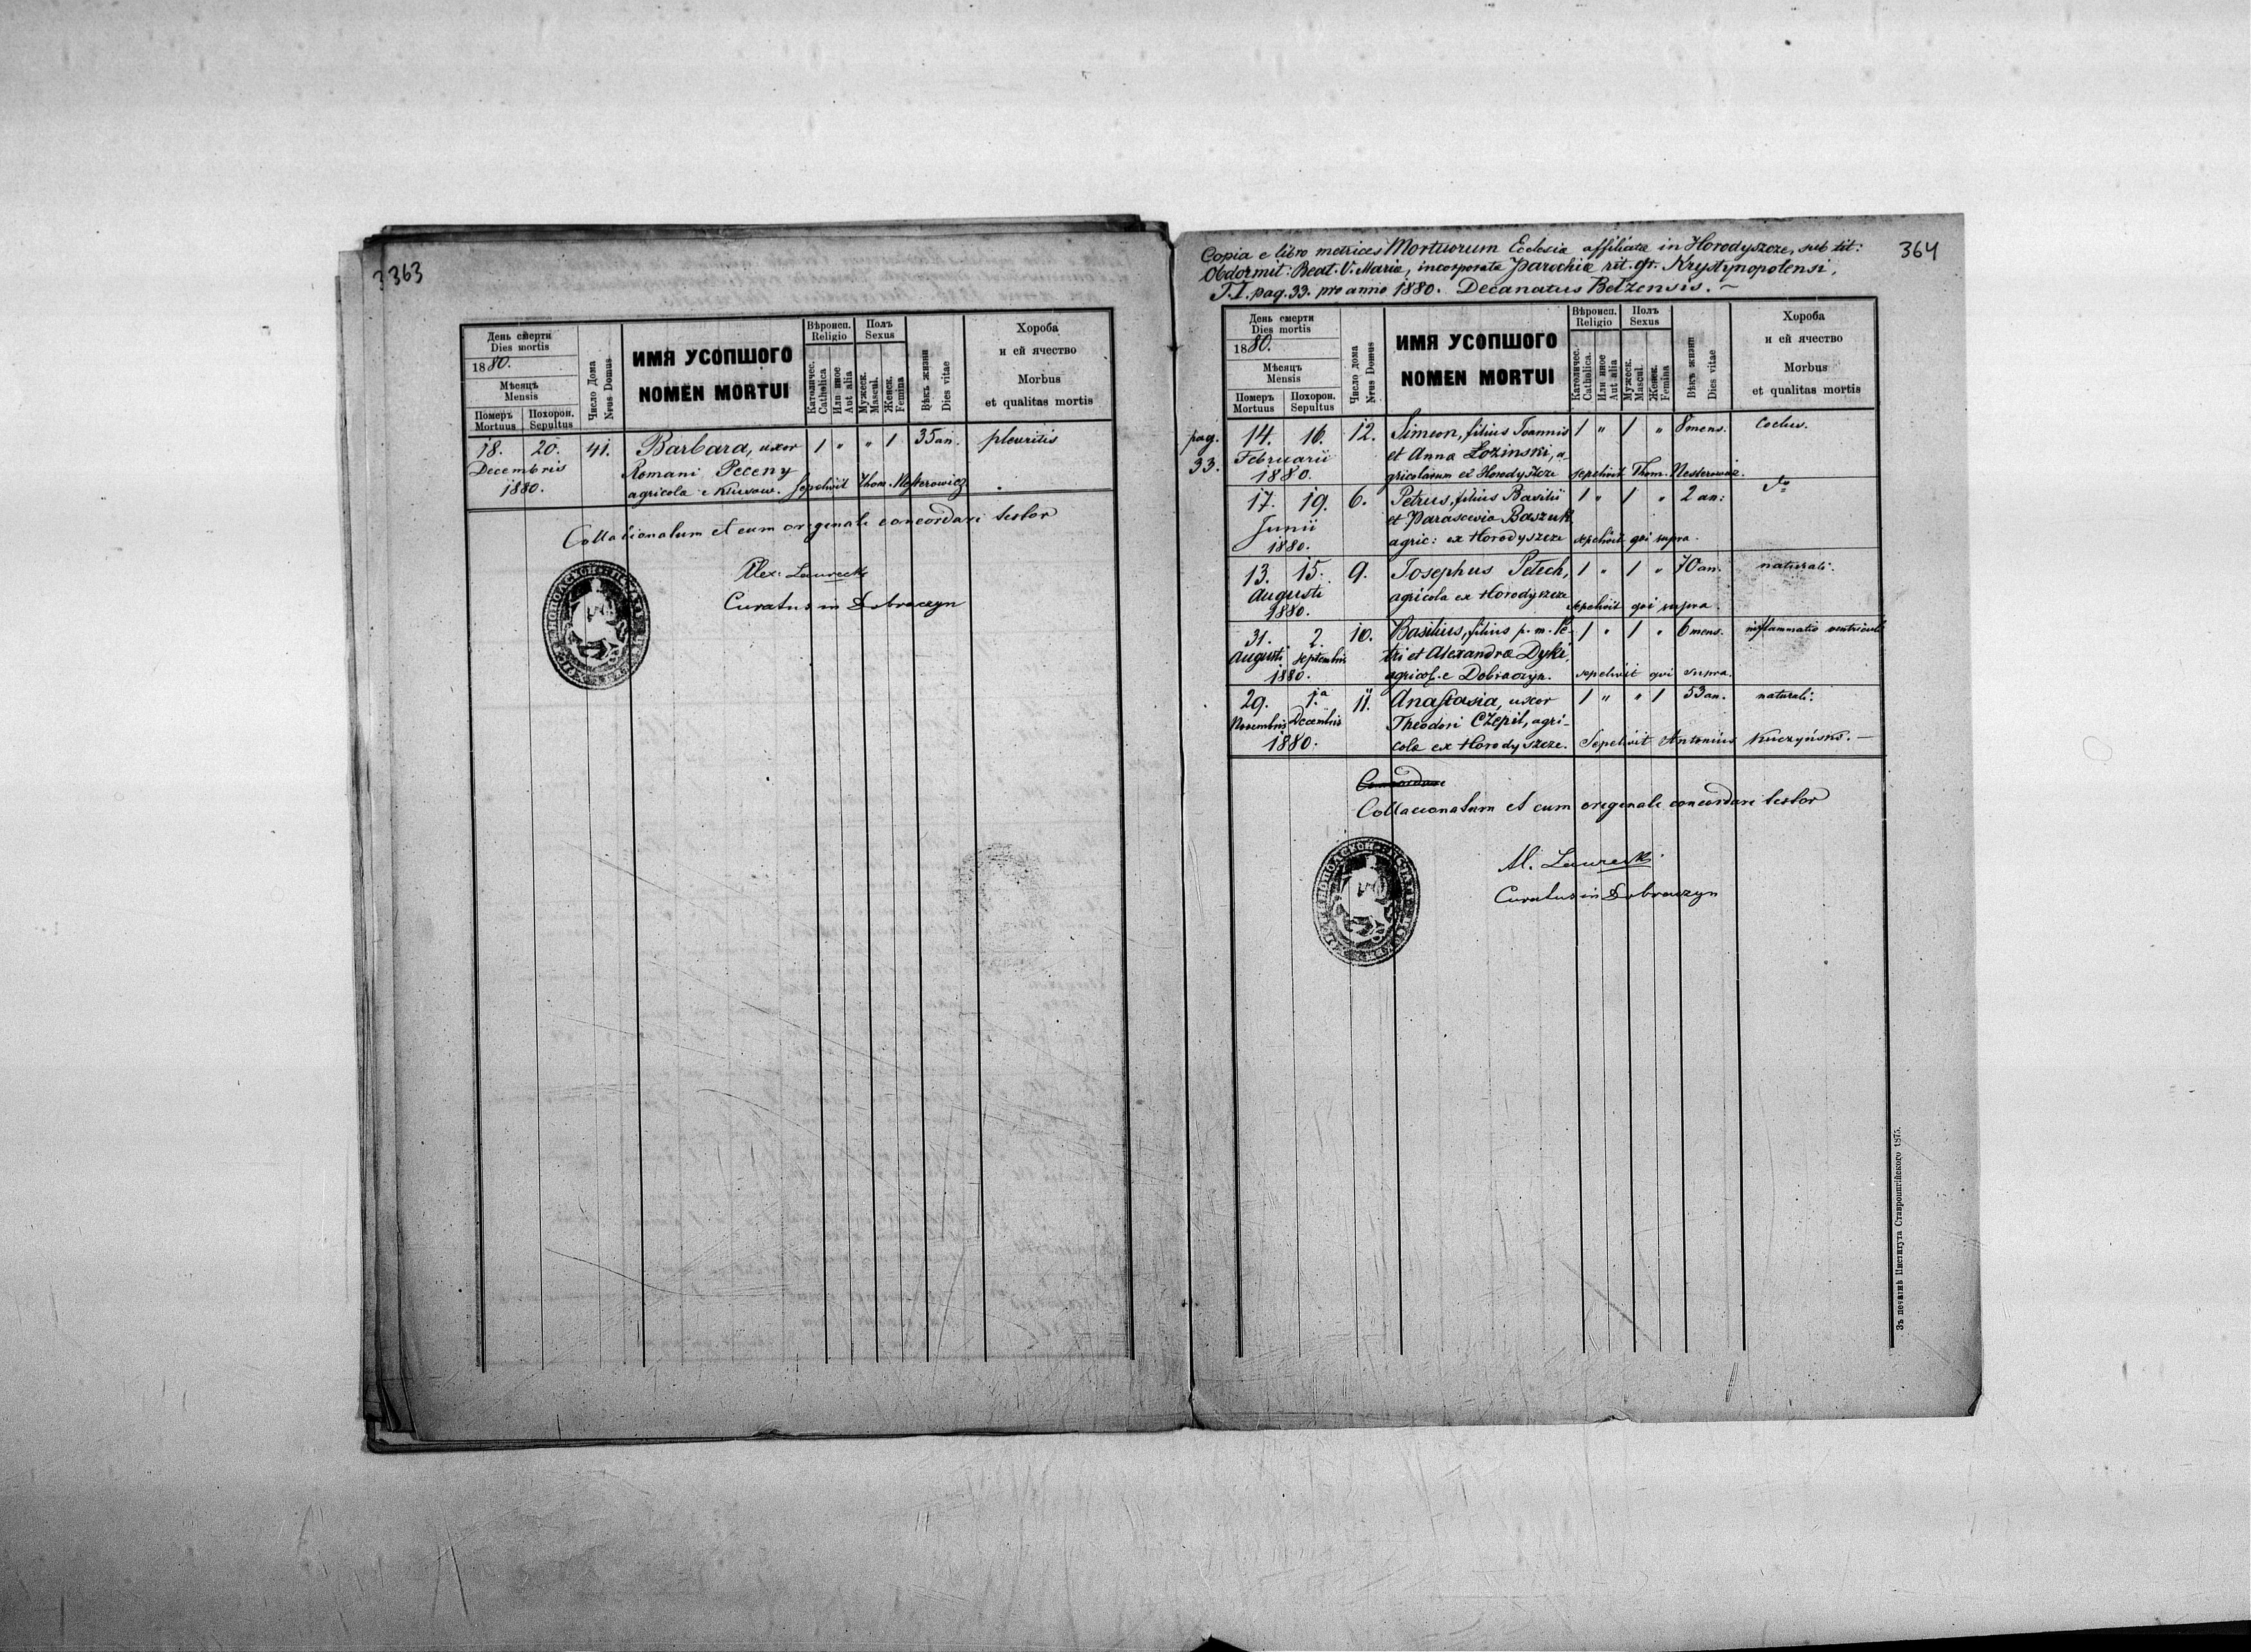 363
День смерти
Dies mortis
1880.
Мѣсяцъ
Mensis
Померъ Похорон.
Mortuus Sepultus
Число Дома
Nrus Domus
ИМЯ УСОПШОГО
NOMEN MORTUI
Вѣроисп.
Religio
Католичес.
Catholica
Или иное
Aut alia
Полъ
Sexus
Мужеск.
Mascul.
Женск.
Femina
Вѣкъ жизни
Dies vitae
Хороба
и ей ячество
Morbus
et qualitas mortis
18. 20. 41. Barbara, uxor 1 " " 1 35 an. pleuritis
Decembris Romani Peceny
1880. agricola e Klusow. Sepelivit Thom. Nesterowicz
Collacionatum et cum originale concordare testor
Alex: Laurecki
Curatus in Dobraczyn
364
Copia e libro metrices Mortuorum Ecclesia affiliata in Horodyszcze, sub tit:
Obdormit: Beat. V. Maria, incorporata Parochiæ rit. gr. Krystynopolensi,
T. I. pag. 33. pro anno 1880. Decanatus Belzensis. ~
День смерти
Dies mortis
1880.
Мѣсяцъ
Mensis
Померъ Похорон.
Mortuus Sepultus
Число дома
Nrus Domus
ИМЯ УСОПШОГО
NOMEN MORTUI
Вѣроисп.
Religio
Католичес.
Catholica.
Или иное
Aut alia
Полъ
Sexus
Мужеск.
Mascul.
Женск.
Femina
Вѣкъ жизни
Dies vitae
Хороба
и ей ячество
Morbus
et qualitas mortis
pag. 33.
14. 16. 12. Simeon, filius Joannis 1 " 1 " 8 mens. Coclus.
Februarii et Anna Łozinski, a-
1880. gricolarum ex Horodyszcze sepelivit Thom. Nesterowicz.
17. 19. 6. Petrus, filius Basilii 1 " 1 " 2 an: dto
Junii et Parascevia Baszuk
1880. agric: ex Horodyszcze sepelivit qui supra.
13. 15. 9. Josephus Petech, 1 " 1 " 70 an. naturali.
Augusti agricola ex Horodyszcze
1880. sepelivit qui supra.
31. 2. 10. Basilius, filius p. m. Pe- 1 " 1 " 6 mens. inflammatio ventriculi
Augusti Septembris tri et Alexandræ Dyki,
1880. agricol. e Dobraczyn. sepelivit qui supra.
29. 1a 11. Anastasia, uxor 1 " " 1 53 an. naturali:
Novembris Decembris Theodori Czepil, agri-
1880. cola ex Horodyszcze. Sepelivit Antonius Kuczyński. —
Concordare
Collacionatum et cum originale concordare testor
Al. Laurecki
Curatus in Dobraczyn
Зъ печатнѣ Института Ставропигійского 1875.